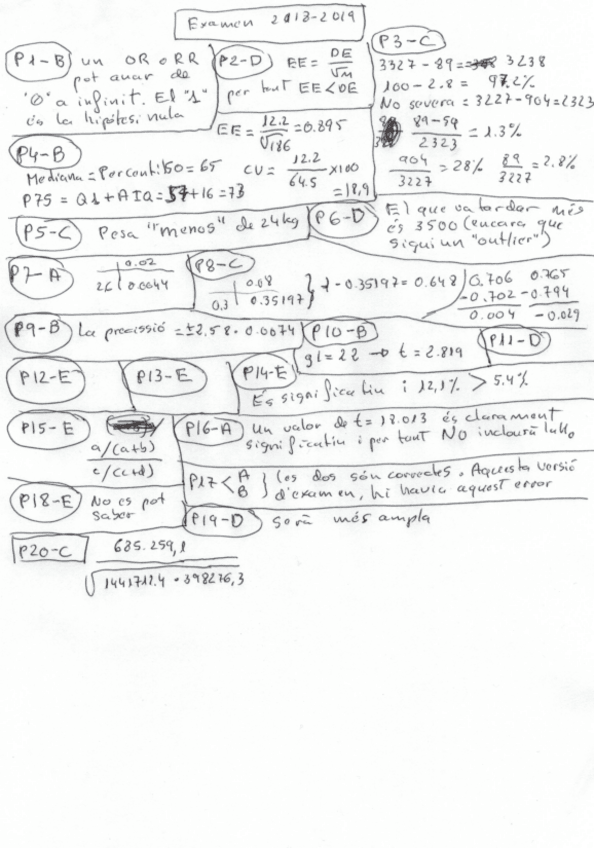 Examen 2018-2019
P1-B un OR o RR
pot anar de
"0" a infinit. El "1"
és la hipòtesi nula
P2-D EE = DE / √n
per tant EE < DE
EE = 12.2 / √186 = 0.895
P3-C
3327 - 89 = 3238
100 - 2.8 = 97.2%
No severa = 3227 - 904 = 2323
89-59 / 2323 = 1.3%
904 / 3227 = 28% 89 / 3227 = 2.8%
P4-B
Mediana = Percentil 50 = 65
P75 = Q1 + AIQ = 57 + 16 = 73
CV = 12.2 / 64.5 x100
= 18,9
P5-C Pesa "menos" de 24kg
P6-D El que va tardar més
és 3500 (encara que
sigui un "outlier")
P7-A 0.02
2.6 0.0044
P8-C 0.08
0.3 0.35197 } 1 - 0.35197 = 0.648
0.706 0.765
-0.702 -0.794
0.004 -0.029
P9-B La precissió = ±2.58 · 0.0074
P10-B
gl = 22 → t = 2.819
P11-D
P12-E
P13-E
P14-E
És significatiu i 12,1% > 5.4%
P15-E
a/(a+b)
c/(c+d)
P16-A un valor de t = 18.013 és clarament
significatiu i per tant NO inclourà l'u
P17 < A B } les dos són correctes. Aquesta versió
d'examen, hi havia aquest error
P18-E No es pot
saber
P19-D serà més ampla
P20-C 685.259,1
√1441712.4 · 398276,3